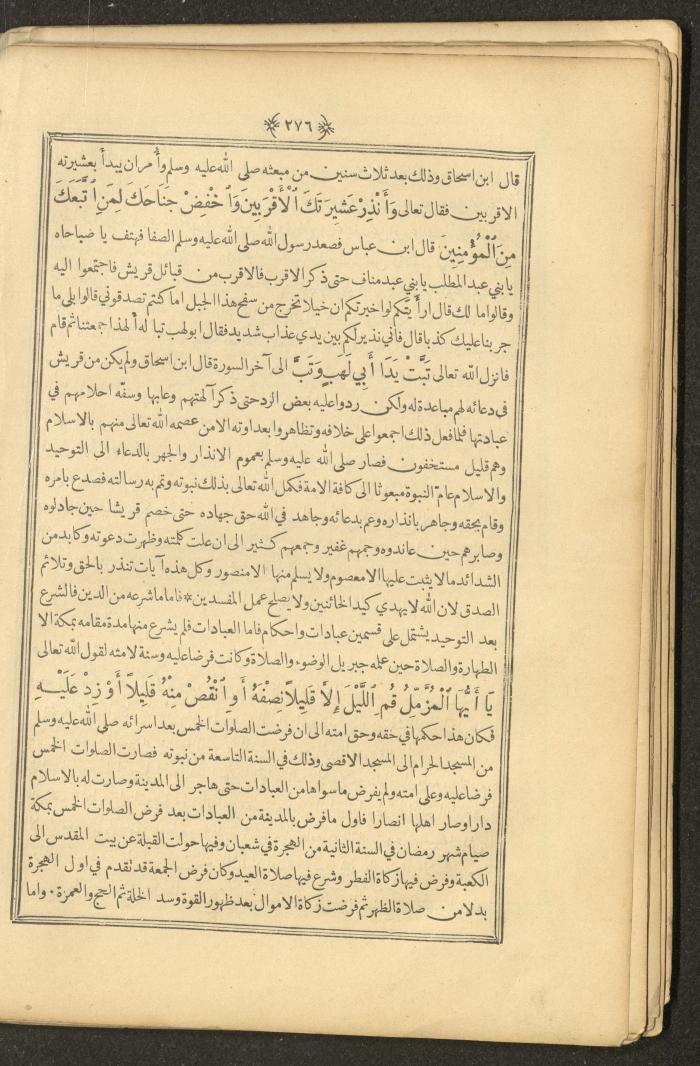 ﴿٢٧٦﴾
قال ابن اسحاق وذلك بعد ثلاث سنين من مبعثه صلى الله عليه وسلم وأُمر ان يبدأ بعشيرته
الاقربين فقال تعالى وَأَنْذِرْ عَشِيرَتَكَ ٱلْأَقْرَبِينَ وَٱخْفِضْ جَنَاحَكَ لِمَنِ ٱتَّبَعَكَ
مِنَ ٱلْمُؤْمِنِينَ قال ابن عباس فصعد رسول الله صلى الله عليه وسلم الصفا فهتف يا صباحاه
يا بني عبد المطلب يا بني عبد مناف حتى ذكر الاقرب فالاقرب من قبائل قريش فاجتمعوا اليه
وقالوا ما لك قال ارأيتكم لو اخبرتكم ان خيلا تخرج من سفح هذا الجبل اما كنتم تصدقوني قالوا بلى ما
جربنا عليك كذبا قال فاني نذير لكم بين يدي عذاب شديد فقال ابو لهب تبا له ألهذا جمعتنا ثم قام
فانزل الله تعالى تَبَّتْ يَدَا أَبِي لَهَبٍ وَتَبَّ الى آخر السورة قال ابن اسحاق ولم يكن من قريش
في دعائه لهم مباعدة له ولكن ردوا عليه بعض الرد حتى ذكر آلهتهم وعابها وسفّه احلامهم في
عبادتها فلما فعل ذلك اجمعوا على خلافه وتظاهروا بعداوته الا من عصمه الله تعالى منهم بالاسلام
وهم قليل مستخفون فصار صلى الله عليه وسلم بعموم الانذار والجهر بالدعاء الى التوحيد
والاسلام عامّ النبوة مبعوثا الى كافة الامة فكمل الله تعالى بذلك نبوته وتم به رسالته فصدع بامره
وقام بحقه وجاهر بانذاره وعم بدعائه وجاهد في الله حق جهاده حتى خصم قريشا حين جادلوه
وصابرهم حين عاندوه وجمهم غفير وجمعهم كثير الى ان علت كلمته وظهرت دعوته وكابد من
الشدائد ما لا يثبت عليها الا معصوم ولا يسلم منها الا منصور وكل هذه آيات تنذر بالحق وتلائم
الصدق لان الله لا يهدي كيد الخائنين ولا يصلح عمل المفسدين * فاما ما شرعه من الدين فالشرع
بعد التوحيد يشتمل على قسمين عبادات واحكام فاما العبادات فلم يشرع منها مدة مقامه بمكة الا
الطهارة والصلاة حين علمه جبريل الوضوء والصلاة وكانت فرضا عليه وسنة لامته لقول الله تعالى
يَا أَيُّهَا ٱلْمُزَّمِّلُ قُمِ ٱللَّيْلَ إِلاَّ قَلِيلاً نِصْفَهُ أَوِ ٱنْقُصْ مِنْهُ قَلِيلاً أَوْ زِدْ عَلَيْهِ
فكان هذا حكمها في حقه وحق امته الى ان فرضت الصلوات الخمس بعد اسرائه صلى الله عليه وسلم
من المسجد الحرام الى المسجد الاقصى وذلك في السنة التاسعة من نبوته فصارت الصلوات الخمس
فرضا عليه وعلى امته ولم يفرض ما سواها من العبادات حتى هاجر الى المدينة وصارت له بالاسلام
دارا وصار اهلها انصارا فاول ما فرض بالمدينة من العبادات بعد فرض الصلوات الخمس بمكة
صيام شهر رمضان في السنة الثانية من الهجرة في شعبان وفيها حولت القبلة عن بيت المقدس الى
الكعبة وفرض فيها زكاة الفطر وشرع فيها صلاة العيد وكان فرض الجمعة قد تقدم في اول الهجرة
بدلا من صلاة الظهر ثم فرضت زكاة الاموال بعد ظهور القوة وسد الخلة ثم الحج والعمرة ٠ واما